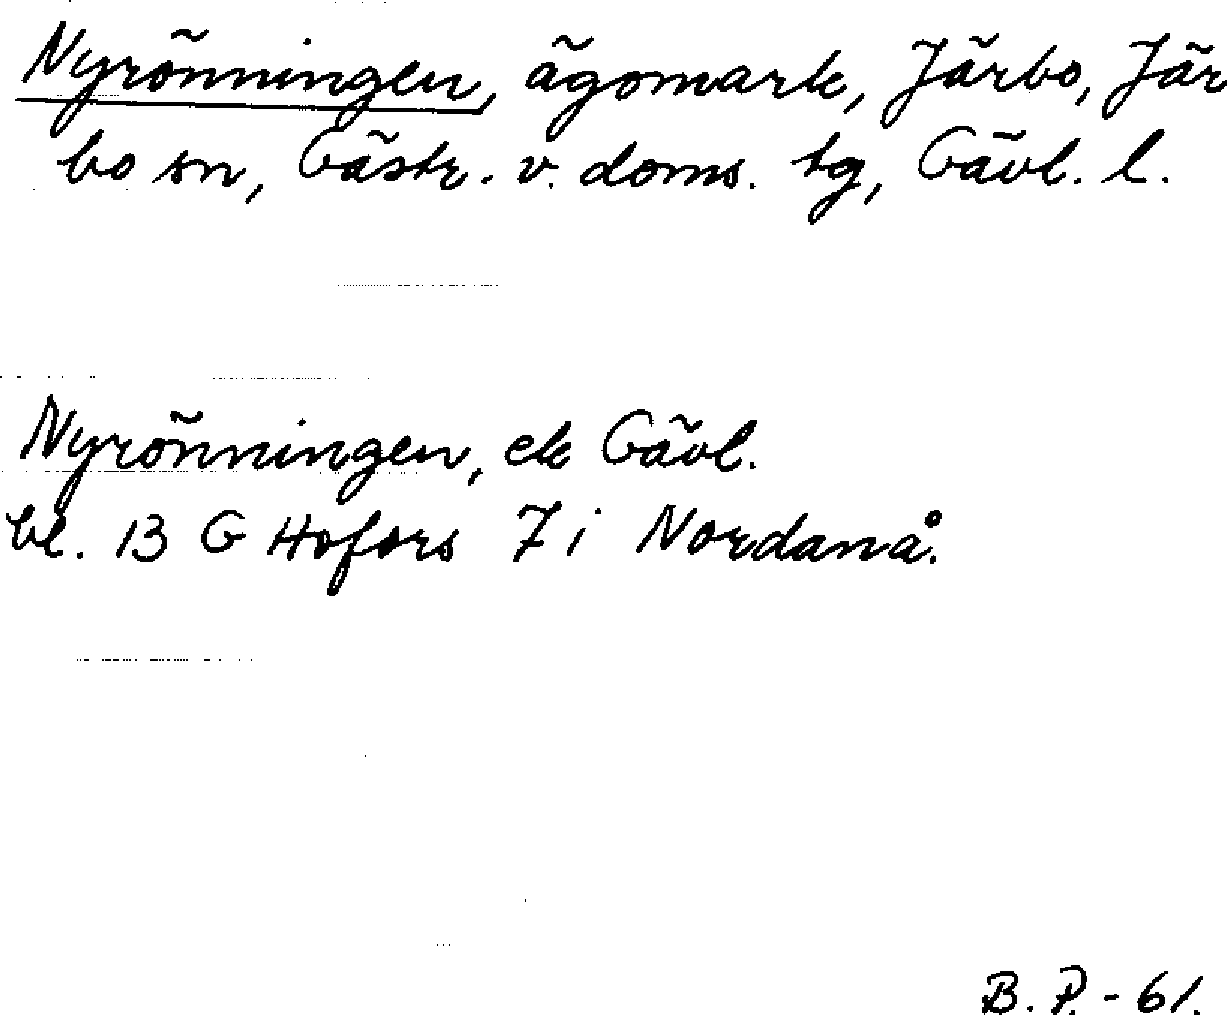 Nyrönningen, ägomark, Järbo, Jär
bo sn, Gästr. v. doms. tg, Gävl. l.
Nyrönningen, ek Gävl.
bl. 13 G Hofors 7 i Nordanå.
B. P. - 61.